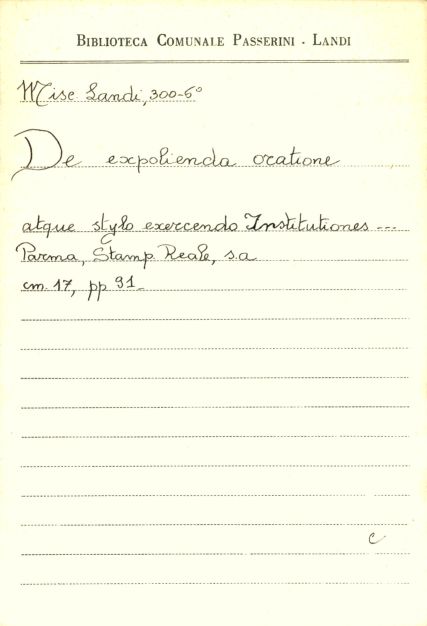 BIBLIOTECA COMUNALE PASSERINI - LANDI
Misc Landi, 300-6°
De expolienda oratione
atque stylo exercendo Institutiones ---
Parma, Stamp Reale, s.a
cm. 17, pp 91_
c